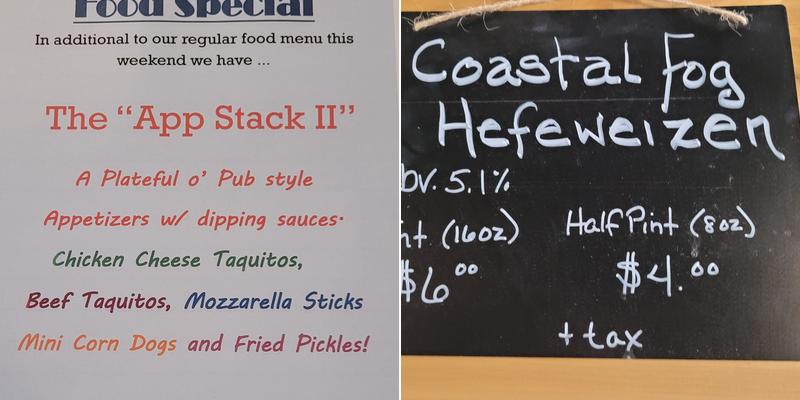 Food Special
In additional to our regular food menu this
weekend we have ...
The “App Stack II”
A Plateful o’ Pub style
Appetizers w/ dipping sauces·
Chicken Cheese Taquitos,
Beef Taquitos, Mozzarella Sticks
Mini Corn Dogs and Fried Pickles!
Coastal Fog
Hefeweizen
bv. 5.1%
nt (16oz) Half Pint (8oz)
$6⁰⁰ $4.⁰⁰
+ tax